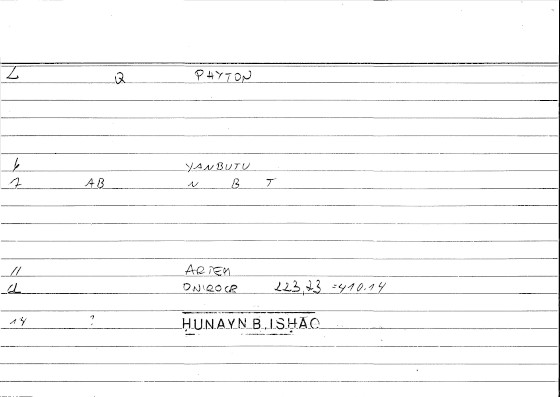 L Q PHYTON
b YANBUTU
7 AB N B T
11 ARTEM
d ONIROCR 223,23 =410.14
14 ? ḤUNAYN B. ISḤĀQ